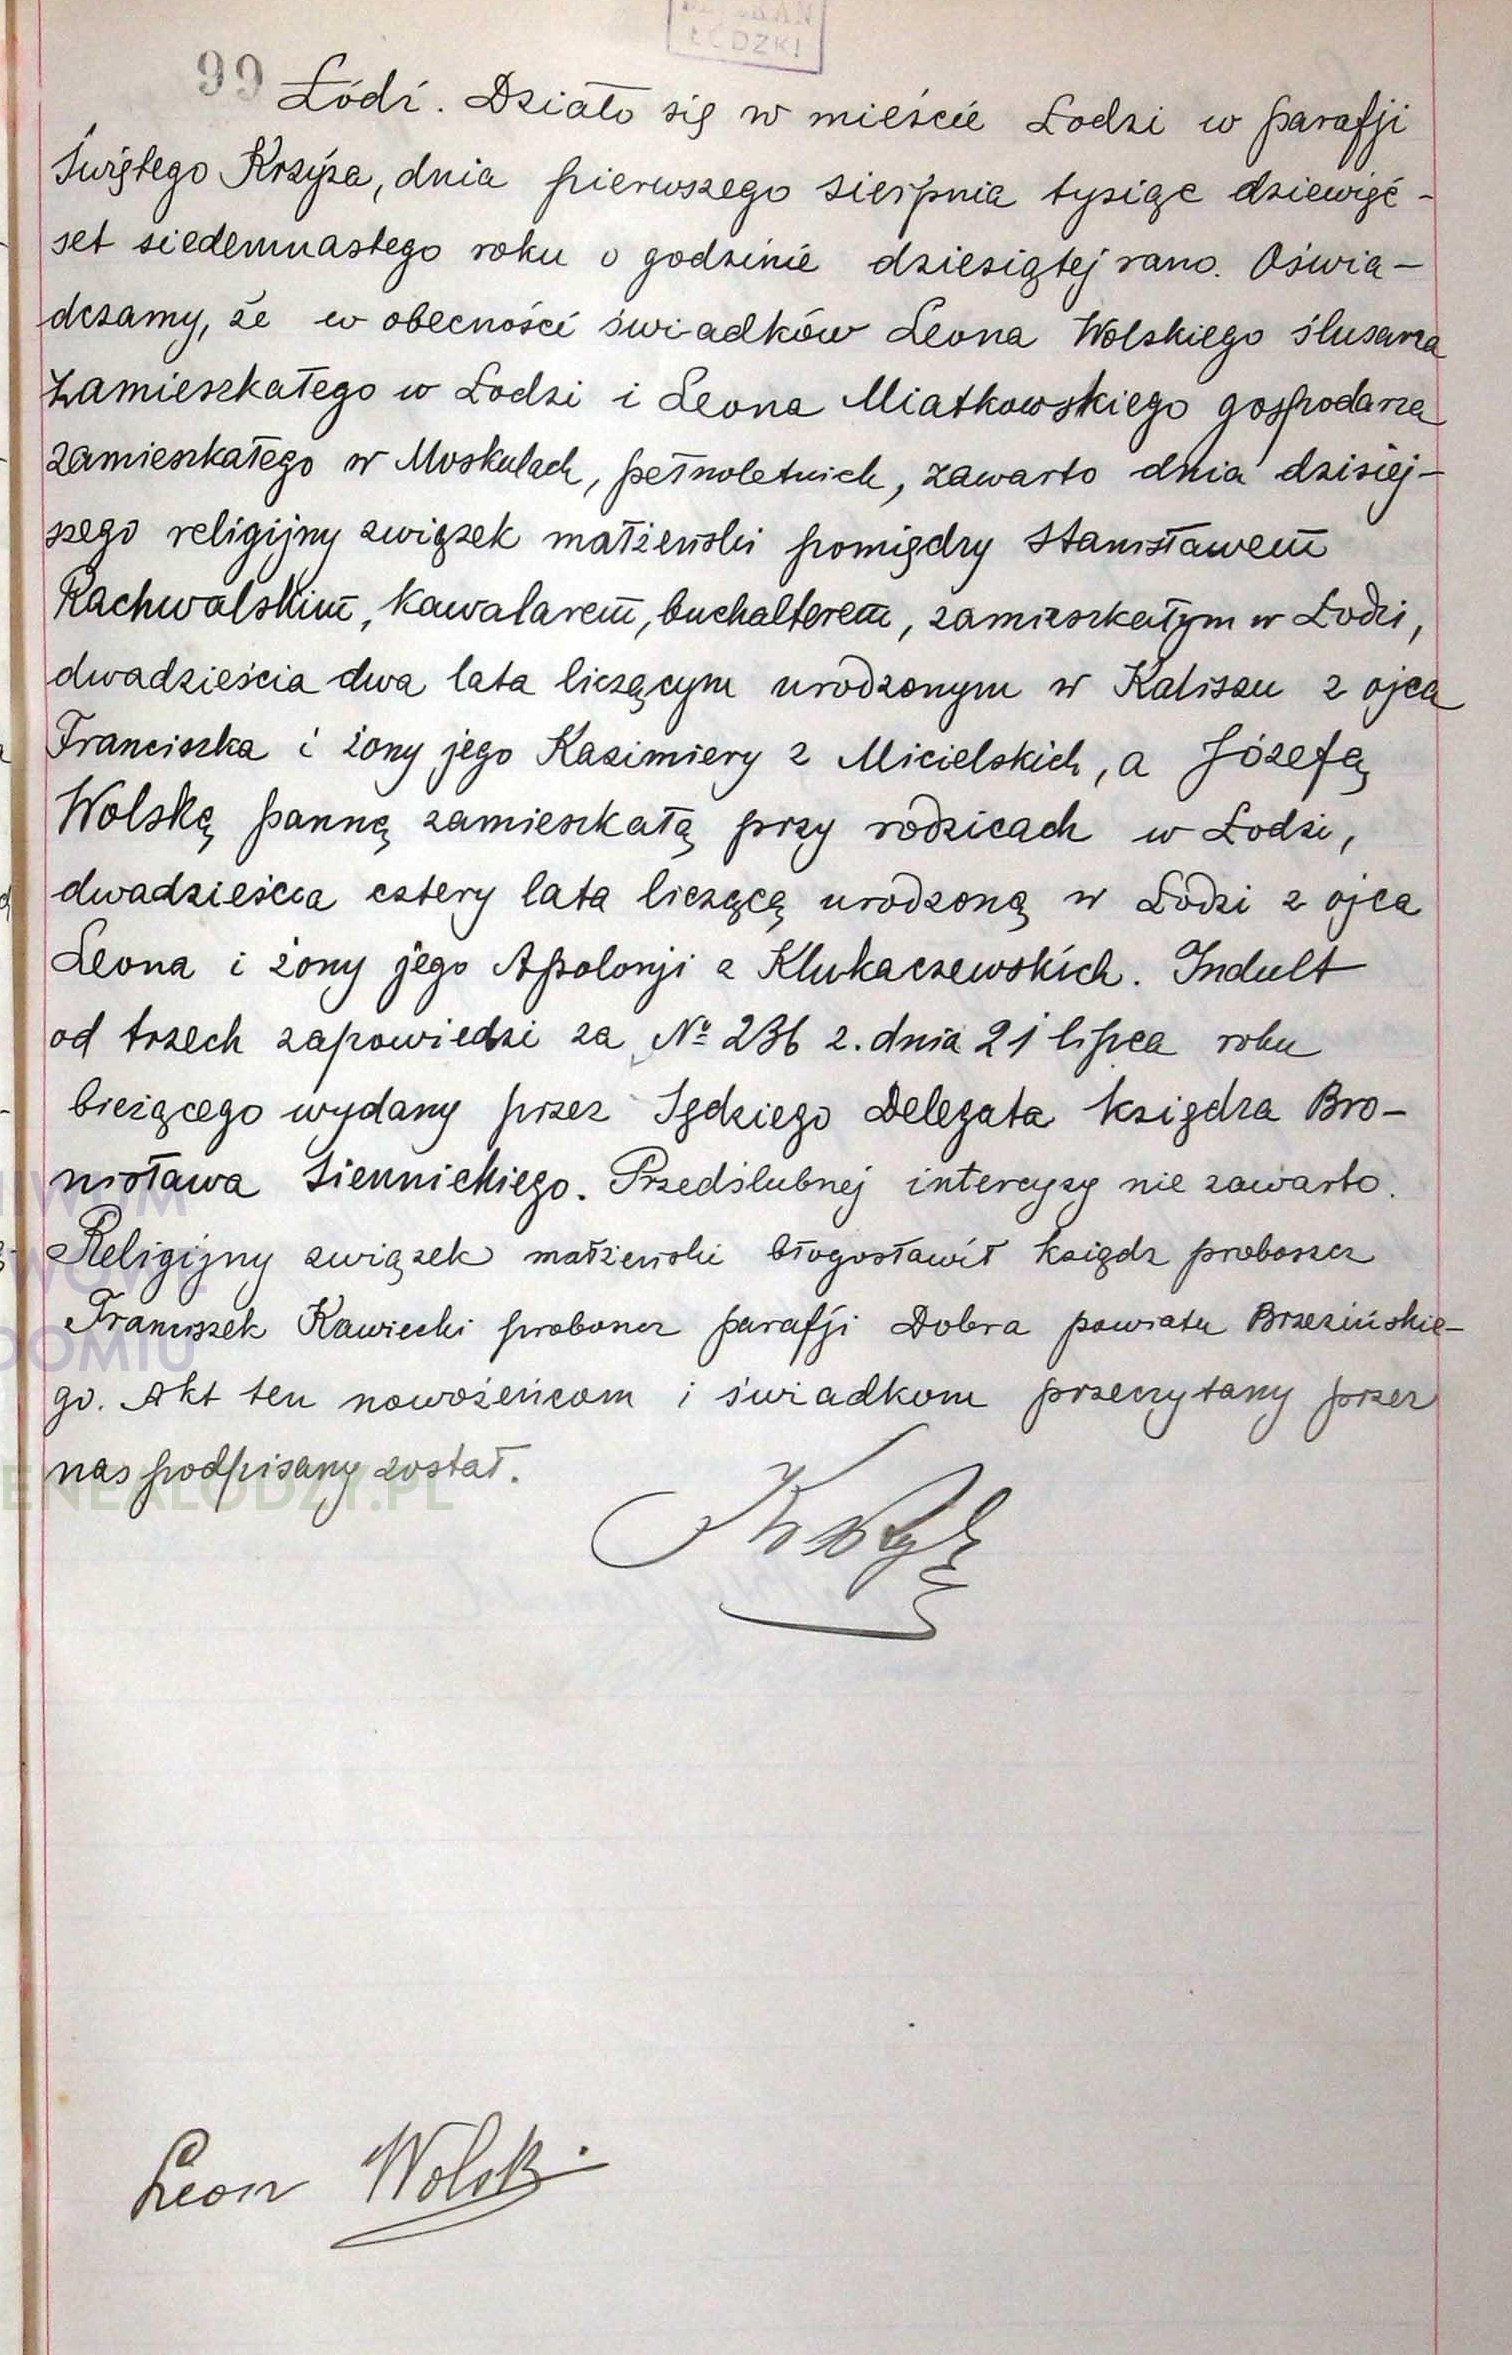 ŁÓDZKI
99 Łódź. Działo się w mieście Łodzi w parafji
Świętego Krzyża, dnia pierwszego sierpnia tysiąc dziewięć-
set siedemnastego roku o godzinie dziesiątej rano. Oświa-
dczamy, że w obecności świadków Leona Wolskiego ślusarza
zamieszkałego w Łodzi i Leona Miatkowskiego gospodarza
zamieszkałego w Moskulach, pełnoletnich, zawarto dnia dzisiej-
szego religijny związek małżeński pomiędzy Stanisławem
Rachwalskim, kawalarem, buchalterem, zamieszkałym w Łodzi,
dwadzieścia dwa lata liczącym urodzonym w Kaliszu z ojca
Franciszka i żony jego Kazimiery z Micielskich, a Józefą
Wolską panną zamieszkałą przy rodzicach w Łodzi,
dwadzieścia cztery lata liczącą urodzoną w Łodzi z ojca
Leona i żony jego Apolonji z Klukaczewskich. Indult
od trzech zapowiedzi za № 236 z. dnia 21 lipca roku
bieżącego wydany przez Sędziego Delegata księdza Bro-
nisława Siennickiego. Przedślubnej intercyzy nie zawarto.
Religijny związek małżeński błogosławił ksiądz proboszcz
Franciszek Kawiecki proboszcz parafji Dobra powiatu Brzezińskie-
go. Akt ten nowożeńcom i świadkom przeczytany przez
nas podpisany został.
ENEALODZY.PL
Leon Wolski